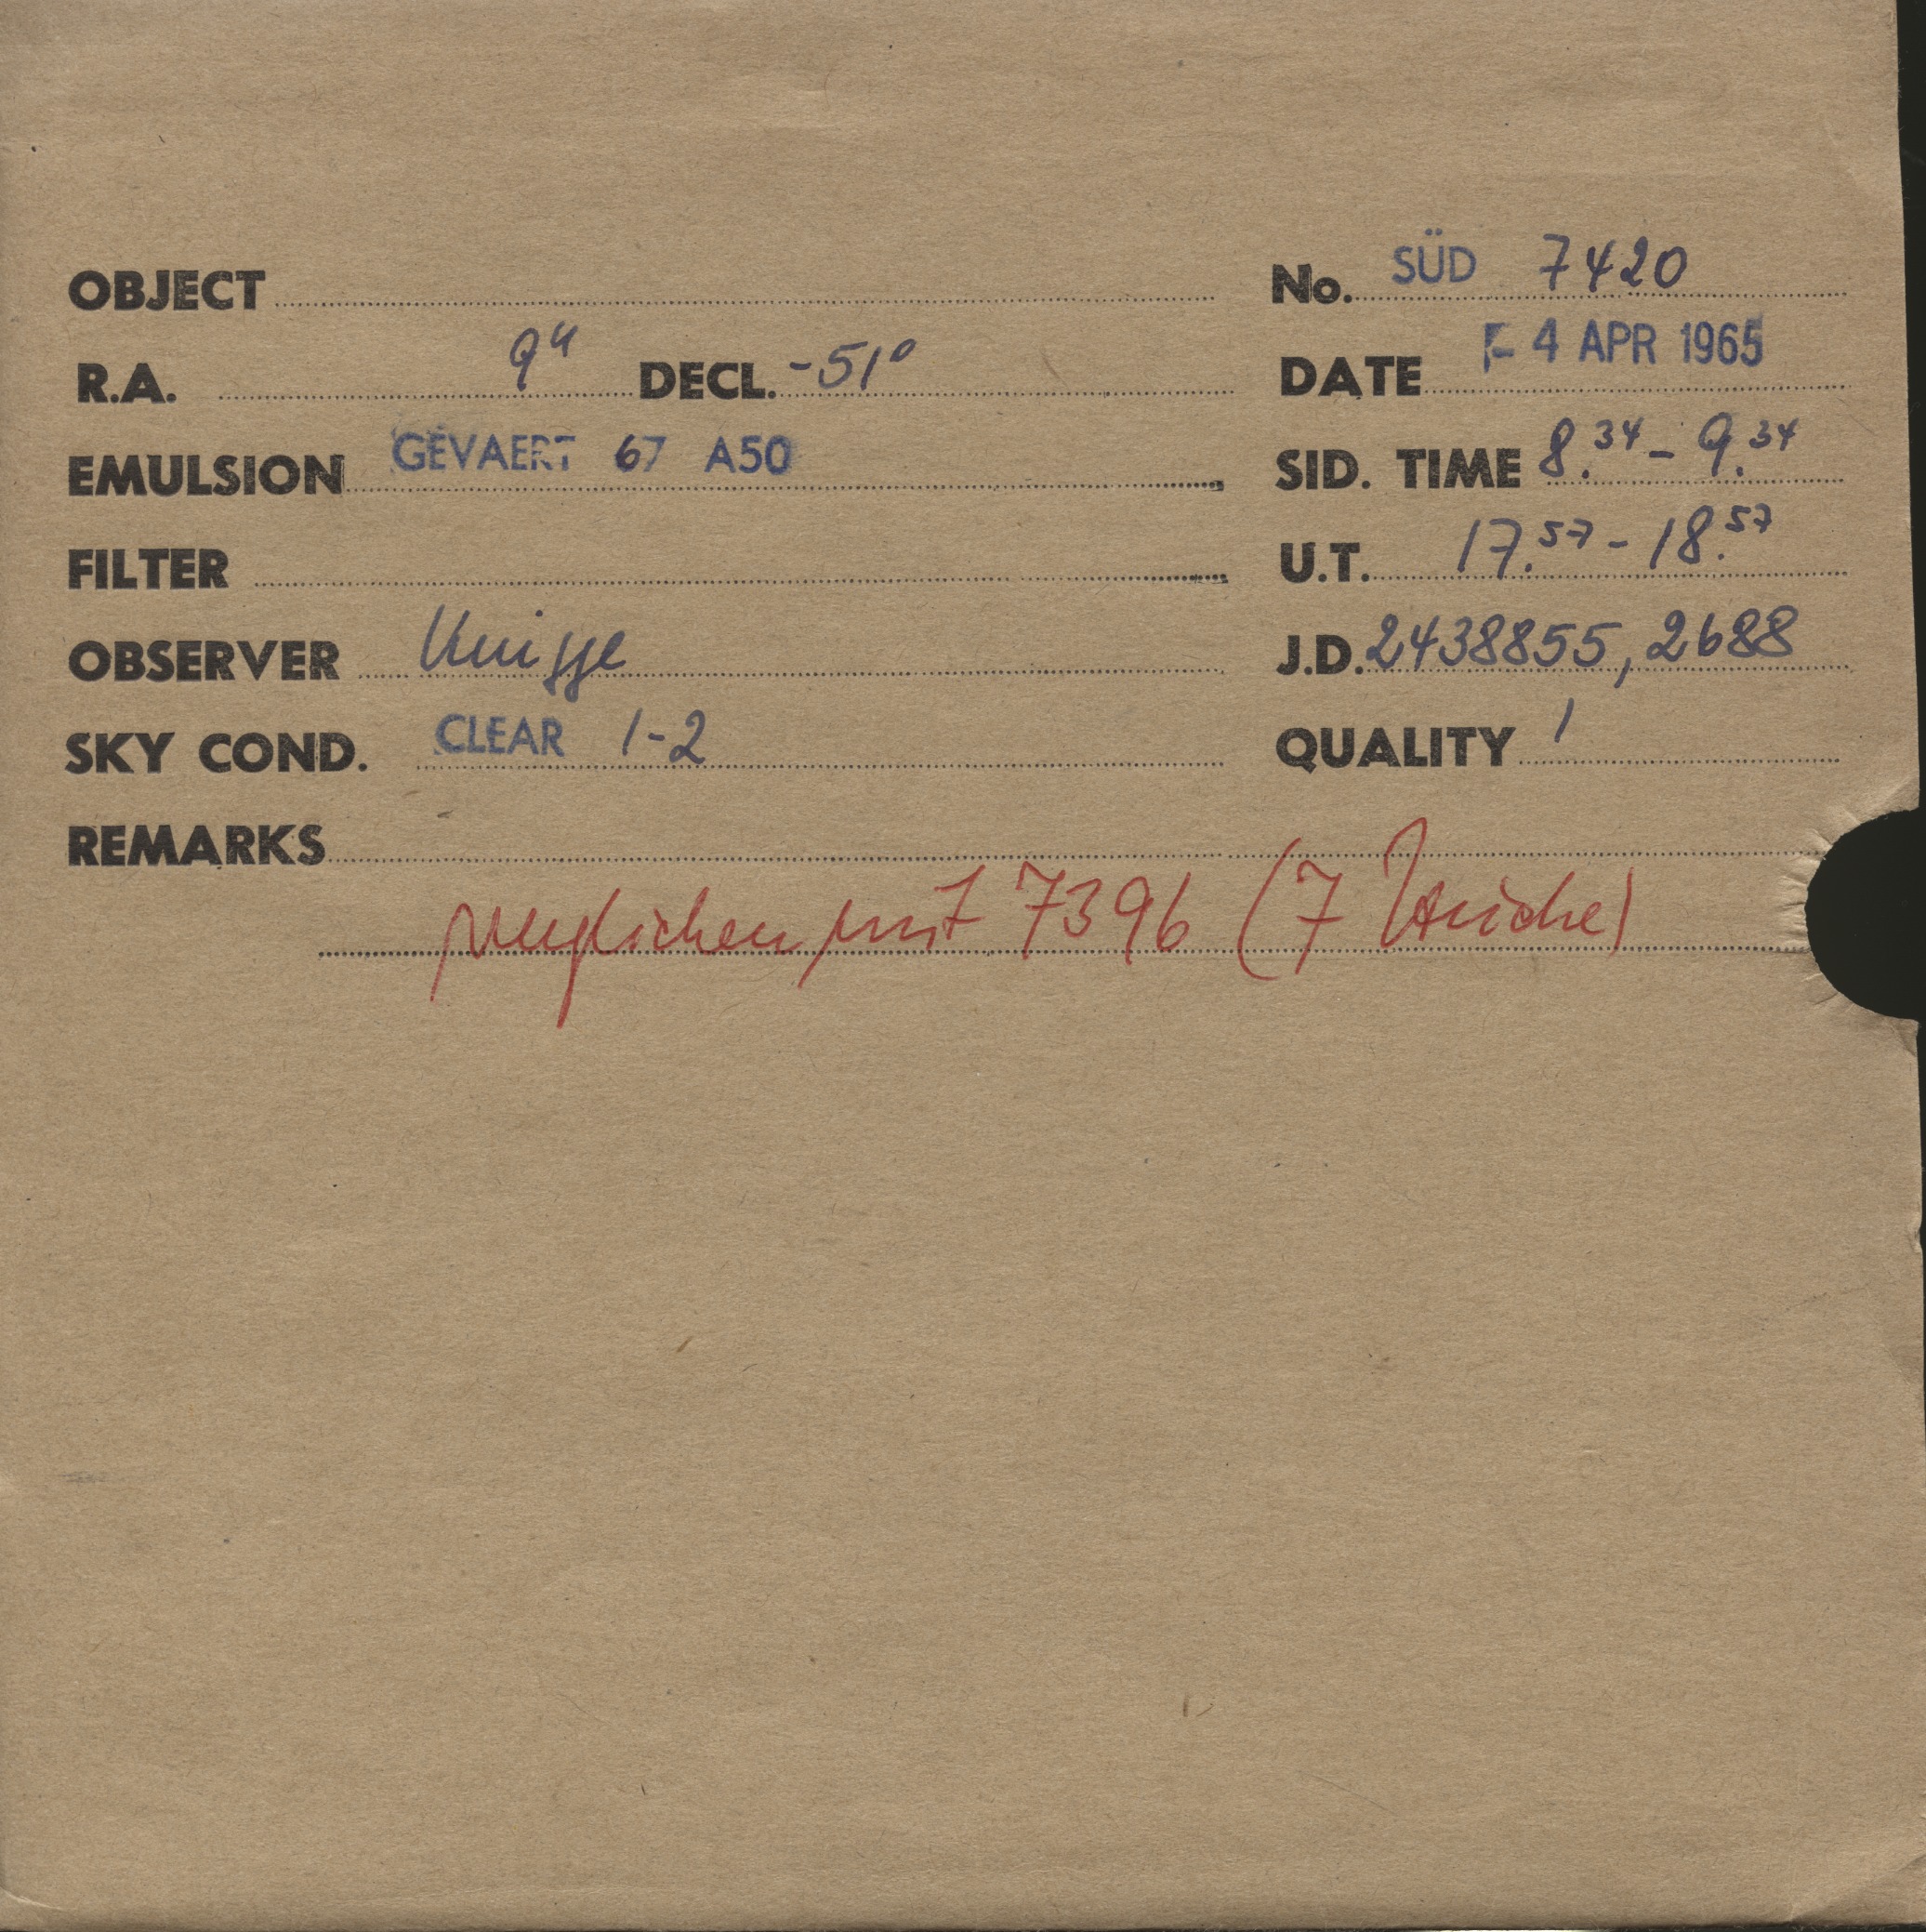 OBJECT No. SÜD 7420
R.A. 9h DECL. -51° DATE - 4 APR 1965
EMULSION GEVAERT 67 A50 SID. TIME 8.34 - 9.34
FILTER U.T. 17.57 - 18.57
OBSERVER Knigge J.D. 2438855,2688
SKY COND. CLEAR 1-2 QUALITY 1
REMARKS
verglichen mit 7396 (7 Striche)